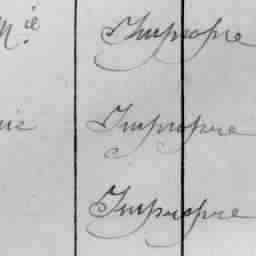 M.ie Impropre
nie Impropre
Impropre